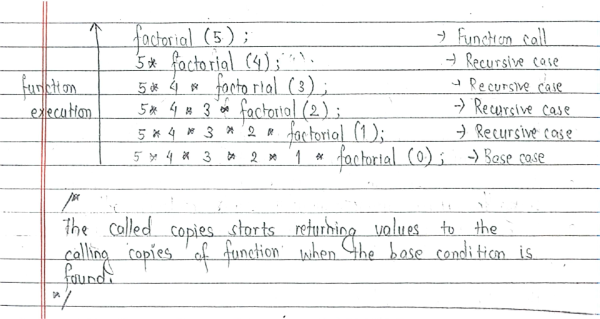 factorial (5) ; → Function call
5 * factorial (4) ; → Recursive case
function 5 * 4 * factorial (3) ; → Recursive case
execution 5 * 4 * 3 * factorial (2) ; → Recursive case
5 * 4 * 3 * 2 * factorial (1) ; → Recursive case
5 * 4 * 3 * 2 * 1 * factorial (0) ; → Base case
/*
The called copies starts returning values to the
calling copies of function when the base condition is
found.
*/